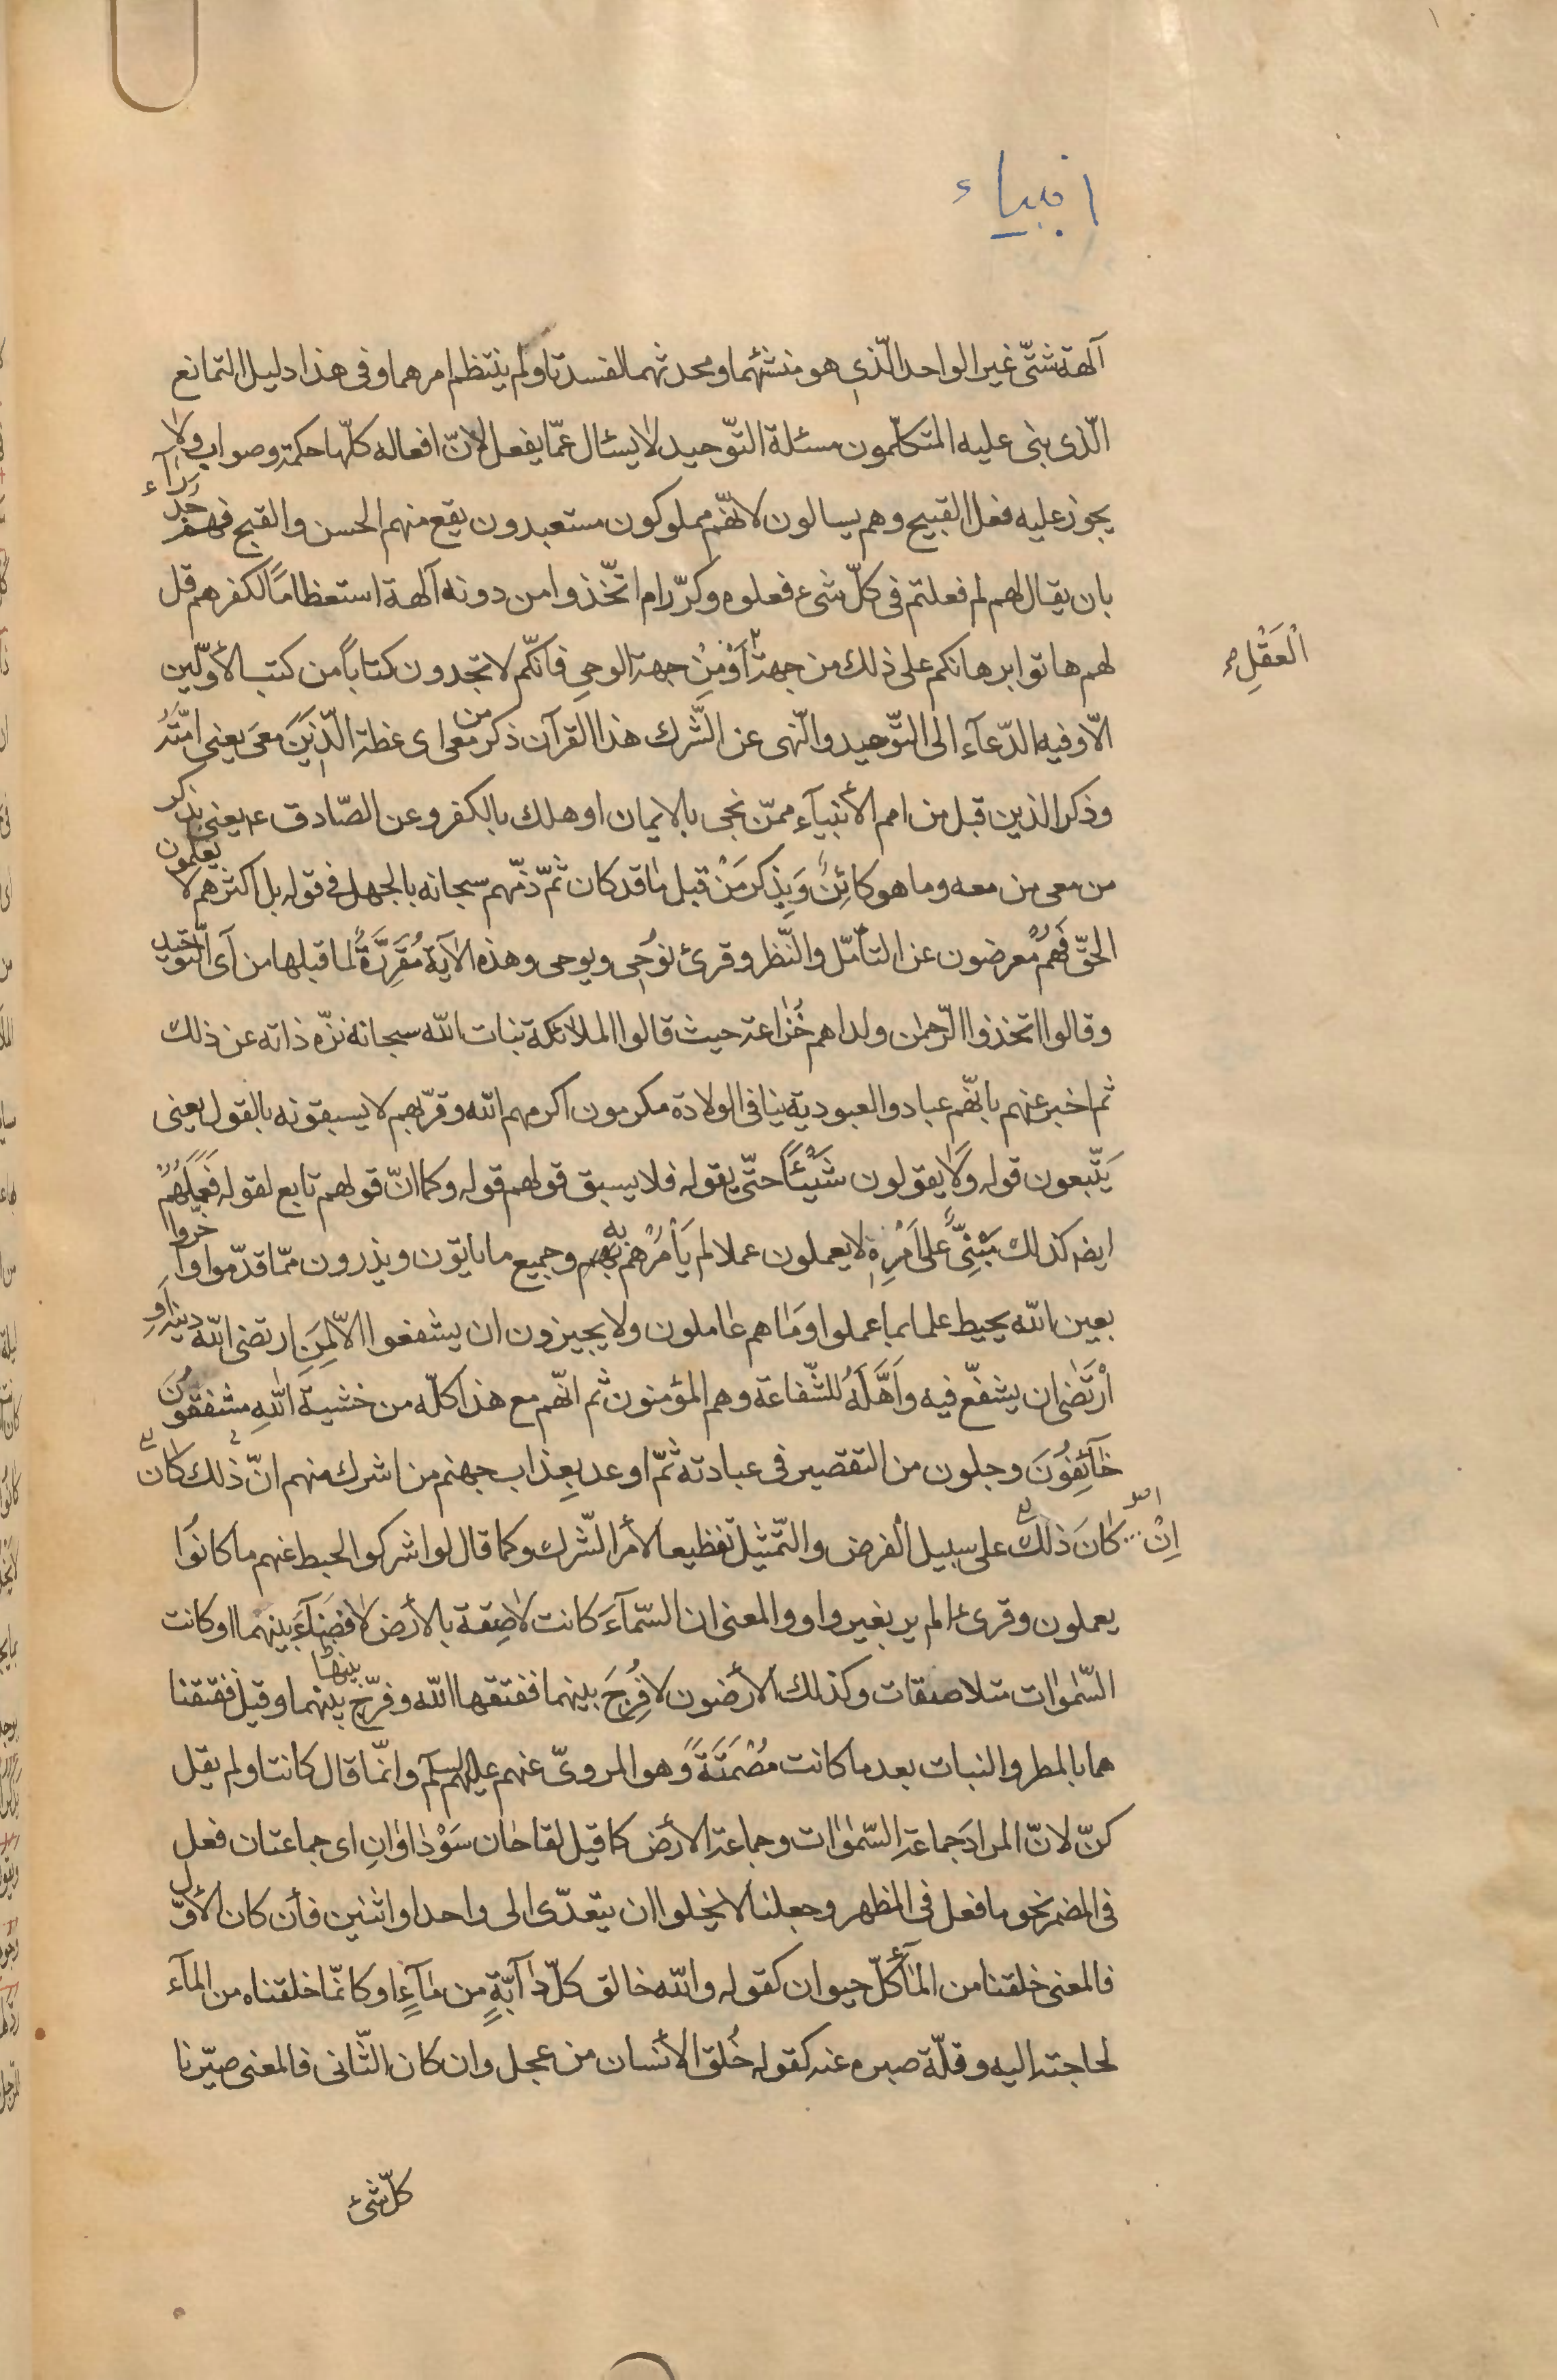 انبیاء
آلهة شتّى غير الواحد الّذى هو منشئهما ومحدثهما لفسدتا ولم ينتظم امرهما وفى هذا دليل التمانع
الّذى بنى عليه المتكلّمون مسئلة التّوحيد لا يسئال عمّا يفعل لانّ افعاله كلّها حكمة وصواب ولا
يجوز عليه فعل القبيح وهم يسالون لانّهم مملوكون مستعبدون يقع منهم الحسن والقبح فهم
بان يقال لهم لم فعلتم فى كلّ شىء فعلوه وكرّر ام اتّخذوا من دونه آلهة استعظاماً لكفرهم قل
لهم هاتوا برهانكم على ذلك من جهة اَوْ مِنْ جهة الوحىِ فانّكم لا تجدون كتاباً من كتب الأوّلين
الْعَقْلِ صح
الّا وفيه الدّعآء الى التّوحيد والنّهى عن الشّرك هذا القرآن ذكر من معى اى عظة الّذِيَن معىَ يعنى امّتَهُ
وذكر الذين قبل من امم الأنبيآء ممّن نجى بالايمان او هلك بالكفر وعن الصّادق ع يعنى بذكر
من معى من معه وما هو كائِنٌ وَبِذِكر مَنْ قبل ما قد كان ثمّ ذمّهم سبحانه بالجهل فى قوله بل اكثرهم لا يعلمون
الحقّ فَهُمْ معرضون عن التأمّل والنّظر وقرئ نوُحِى ويوحى وهذه الآية مُقَرِّرَةً لما قبلها من آى التّوحيد
وقالوا اتخذوا الرّحمٰن ولدا هم خُزاعة حيث قالوا الملائكة بنات اللّه سبحانه نزّه ذاته عن ذلك
ثم اخبر عنهم بانّهم عباد والعبودية ينافى الولادة مكرمون اكرمهم اللّه وقرّبهم لا يسبقونه بالقول يعنى
يَتّبعون قوله وَلا يقولون شَيْئاً حتّى يقوله فلا يسبق قولهم قوله وكما انّ قولهم تابع لقوله فَعَمَلُهُمْ
ايضه كذلك مَبْنِىٌّ على اَمْرِهِ لا يعملون عملا لم يَأمُرْهم به وجميع ما ياتون ويذرون ممّا قدّموا واَخّروا
بعين اللّه يحيط علما بما عملوا وَما هم عاملون ولا يجيزون ان يشفعوا الّا لِمَنِ ارتضى اللّه دينَه اَوِ
اْرتَضٰى ان يشفعّ فيه واَهَّلَهُ للشّفاعة وهم المؤمنون ثم انّهم مع هذا كلّه من خشية اللّهِ مشفقوُنَ
خآئِفوُنَ وجلون من التقصير فى عبادته ثمّ اوعد بِعذاب جهنم من اشرك منهم انّ ذلك كان
اِنْ كانَ ذلك على سبيل الفرض والتّمثيل تفظيعا لأمر الشّرك وكما قال لو اشركوا لحبط عنهم ما كانوُا
يعملون وقرئ الم ير بغير واو والمعنى ان السّمآءَ كانت لاصِقة بالأرض لا فضآءَ بينهما او كانت
السّمٰوات متلاصقات وكذلك الأرضون لا فُرَجَ بينهما ففتقها اللّه وفرّج بينهما وقيل ففتقنا
هما بالمطر والنبات بعد ما كانت مُصْمَتَةً وهو المروىّ عنهم عليهم السلم وانّما قال كانتا ولم يقل
كنّ لانّ المرادَ جماعة السّمٰوات وجماعة الأرض كما قيل لقاحان سَوْداوانِ اى جماعتان فعل
فى المضمر نحو ما فعل فى المظهر وجعلنا لا يخلوا ان يتعدّى الى واحد او اثنين فأن كان الأوّل
فالمعنى خلقنا من المآء كلّ حيوان كقوله واللّه خالق كلّ دآبّةٍ من مآءٍ او كانّما خلقناه من المآء
لحاجته اليه وقلّة صبره عنه كقوله خُلق الأنسان من عجل وان كان الثّانى فالمعنى صيّرنا
كلّ شئ